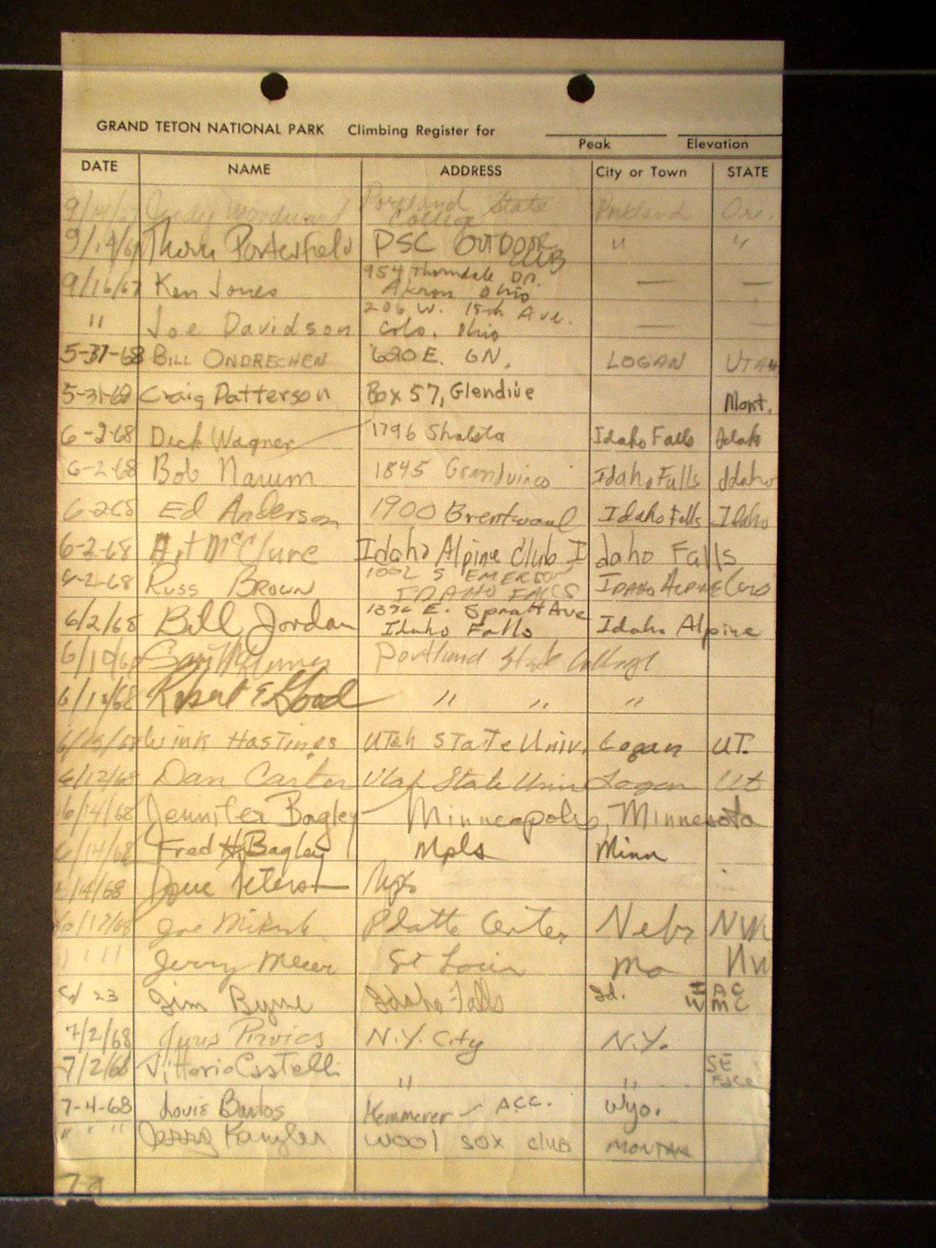 GRAND TETON NATIONAL PARK Climbing Register for
Peak Elevation
DATE NAME ADDRESS City or Town STATE
9/14/67 Woodward Portland State College Portland Ore.
9/14/67 Thom Porterfield PSC OUTDOOR CLUB " "
9/16/67 Ken Jones 954 Thorndale Dr. Akron Ohio — —
" Joe Davidson 206 W. 18th Ave. Colo. Ohio — —
5-31-68 BILL ONDRECHEN 620 E. 6N. LOGAN UTAH
5-31-68 Craig Patterson Box 57, Glendive Mont.
6-2-68 Dick Wagner 1796 Shasta Idaho Falls Idaho
6-2-68 Bob 1845 Grandview Idaho Falls Idaho
6-2-68 Ed Anderson 1900 Brentwood Idaho Falls Idaho
6-2-68 Art McClure Idaho Alpine Club Idaho Falls
6-2-68 RUSS BROWN S EMERSON IDAHO FALLS IDAHO ALPINE CLUB
6/2/68 Bill Jordan E. Spratt Ave Idaho Falls Idaho Alpine
6/10/68 Portland State College
6/10/68 Robert E Good " " "
Wink Hastings Utah State Univ. Logan UT.
6/12/68 Dan Carter Utah State Univ Logan Ut
6/14/68 Jennifer Bagley Minneapolis, Minnesota
6/14/68 Fred H Bagley Mpls Minn
6/14/68 Peterson Mpls
6/17/68 Joe Platte Center Nebr NW
" " " Jerry Meier St Louis Mo NW
6/23 Jim Byrne Idaho Falls Id. AC MC
7/2/68 N.Y. City N.Y.
7/2/68 Vittorio Castelli " " SE Face
7-4-68 Louis Bartos Kemmerer ACC. Wyo.
" " " Jerry Kanzler WOOL SOX CLUB MONTANA